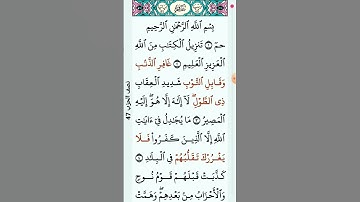 بِسْمِ اللَّهِ الرَّحْمَٰنِ الرَّحِيمِ
حمٓ ۝ تَنزِيلُ الْكِتَٰبِ مِنَ اللَّهِ
الْعَزِيزِ الْعَلِيمِ ۝ غَافِرِ الذَّنۢبِ
وَقَابِلِ التَّوْبِ شَدِيدِ الْعِقَابِ
ذِى الطَّوْلِ ۖ لَآ إِلَٰهَ إِلَّا هُوَ ۖ إِلَيْهِ
الْمَصِيرُ ۝ مَا يُجَٰدِلُ فِىٓ ءَايَٰتِ
اللَّهِ إِلَّا الَّذِينَ كَفَرُوا۟ فَلَا
يَغْرُرْكَ تَقَلُّبُهُمْ فِى الْبِلَٰدِ ۝
كَذَّبَتْ قَبْلَهُمْ قَوْمُ نُوحٍ
وَالْأَحْزَابُ مِنۢ بَعْدِهِمْ ۖ وَهَمَّتْ
نصف الحزب 47